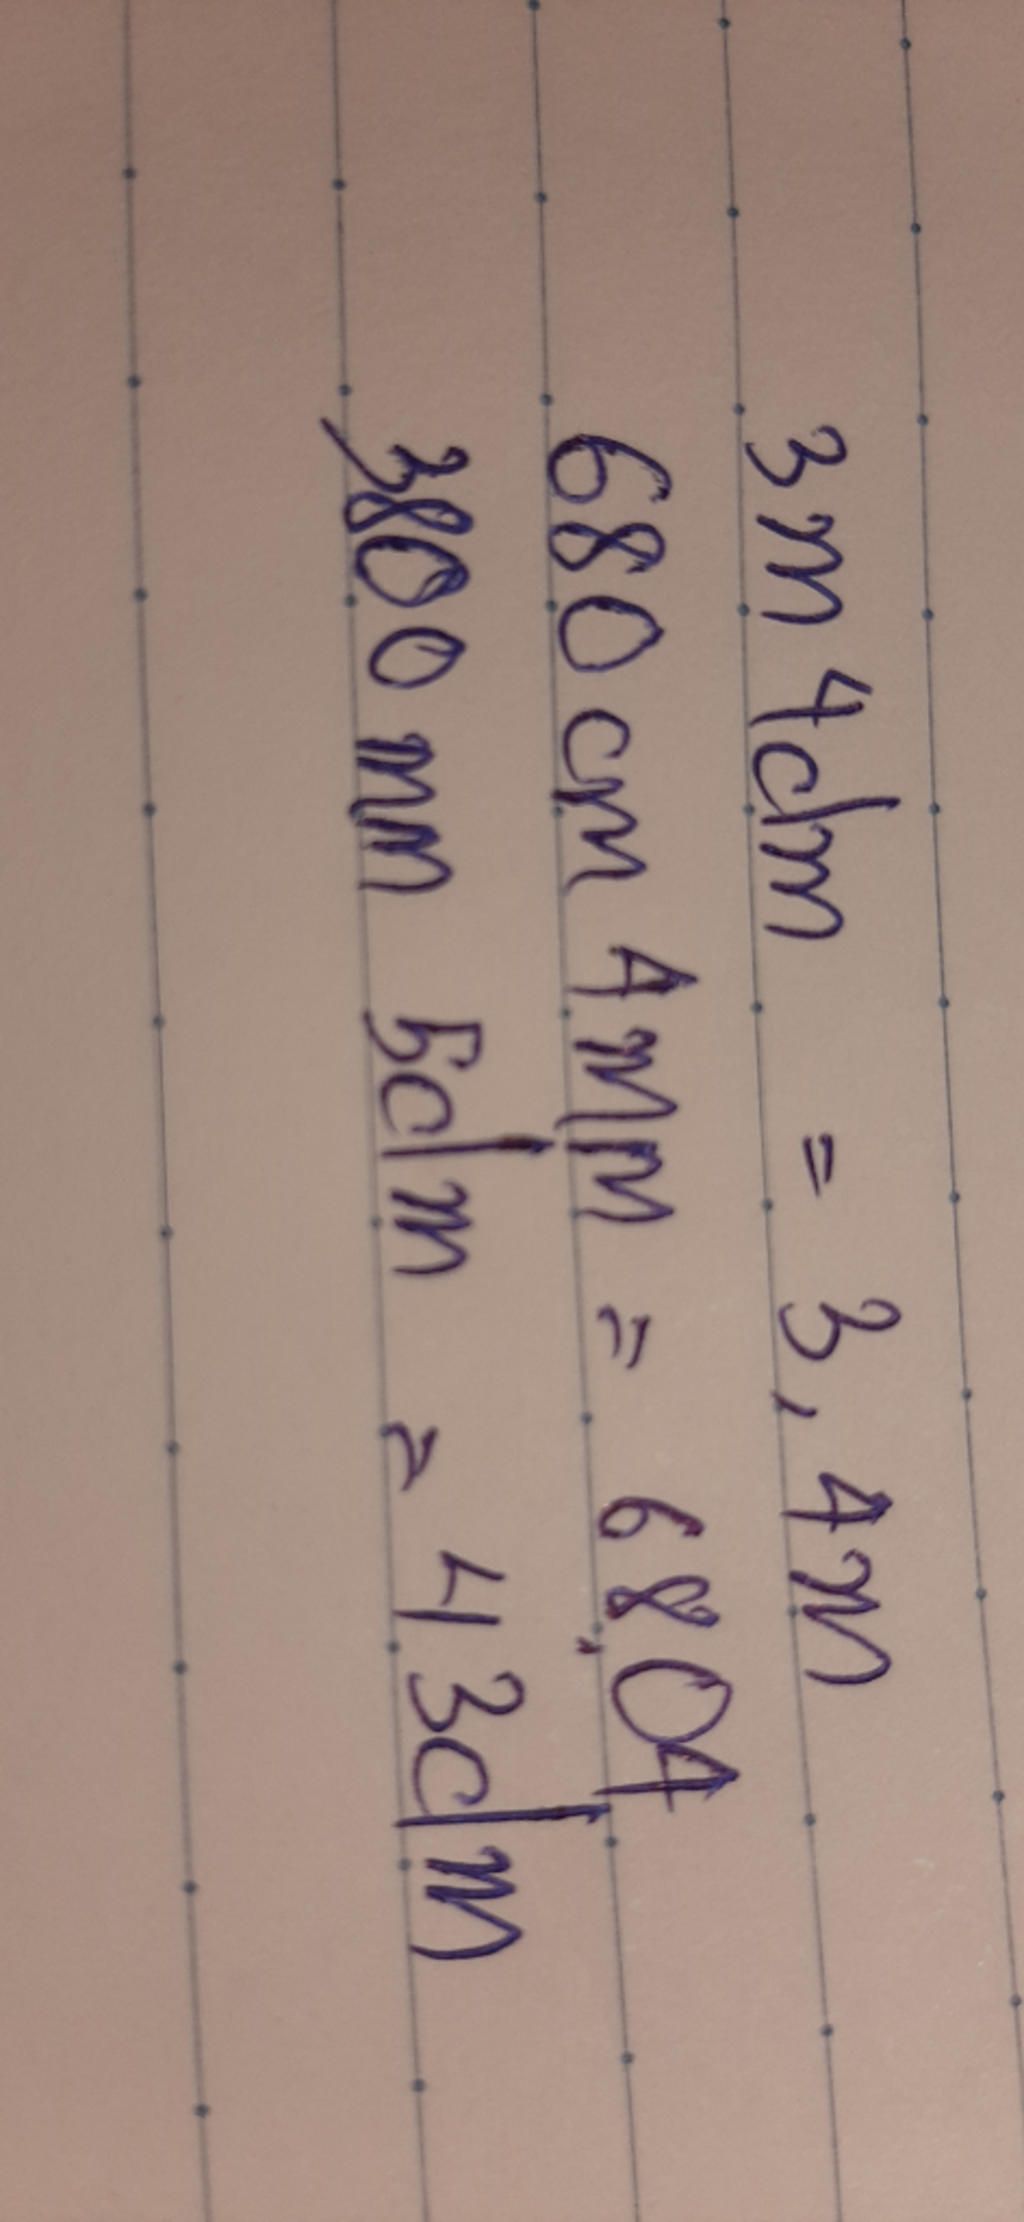 3m 4dm = 3,4m
680cm 4mm = 68,04
3800mm 5dm = 43dm